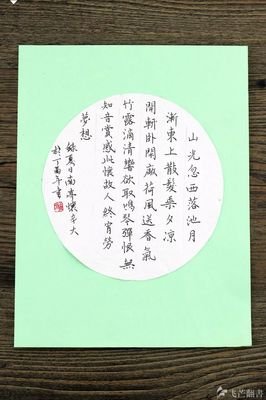 山光忽西落池月
漸東上散髮乘夕凉
開斬卧閑廠荷風送香氣
竹露滴清響欲取鳴琴彈恨無
知音賞感此懷故人終宵勞
夢想
錄夏日南亭懷辛大
於丁酉年書
飞芒翻書